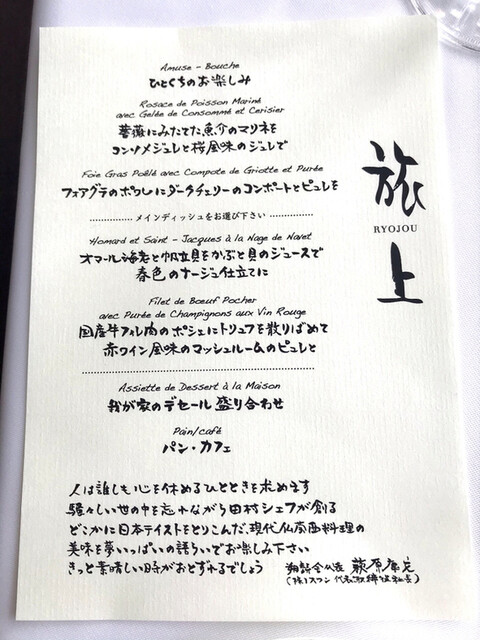 Amuse - Bouche
ひとくちのお楽しみ
Rosace de Poisson Mariné
avec Gelée de Consommé et Cerisier
薔薇にみたてた魚介のマリネを
コンソメジュレと桜風味のジュレで
Foie Gras Poêlé avec Compote de Griotte et Purée
フォアグラのポワレにダークチェリーのコンポートとピュレを
メインディッシュをお選び下さい
Homard et Saint - Jacques à la Nage de Navet
オマール海老と帆立貝をかぶと貝のジュースで
春色のナージュ仕立てに
Filet de Boeuf Pocher
avec Purée de Champignons aux Vin Rouge
国産牛フィレ肉のポシェにトリュフを散りばめて
赤ワイン風味のマッシュルームのピュレと
Assiette de Dessert à la Maison
我が家のデセール盛り合わせ
Pain/café
パン・カフェ
旅上
RYOJOU
人は誰しも心を休めるひとときを求めます
騒々しい世の中を忘れながら田村シェフが創る
どこかに日本テイストをとりこんだ、現代仏蘭西料理の
美味を夢いっぱいの語らいでお楽しみ下さい
きっと素晴しい時がおとずれるでしょう